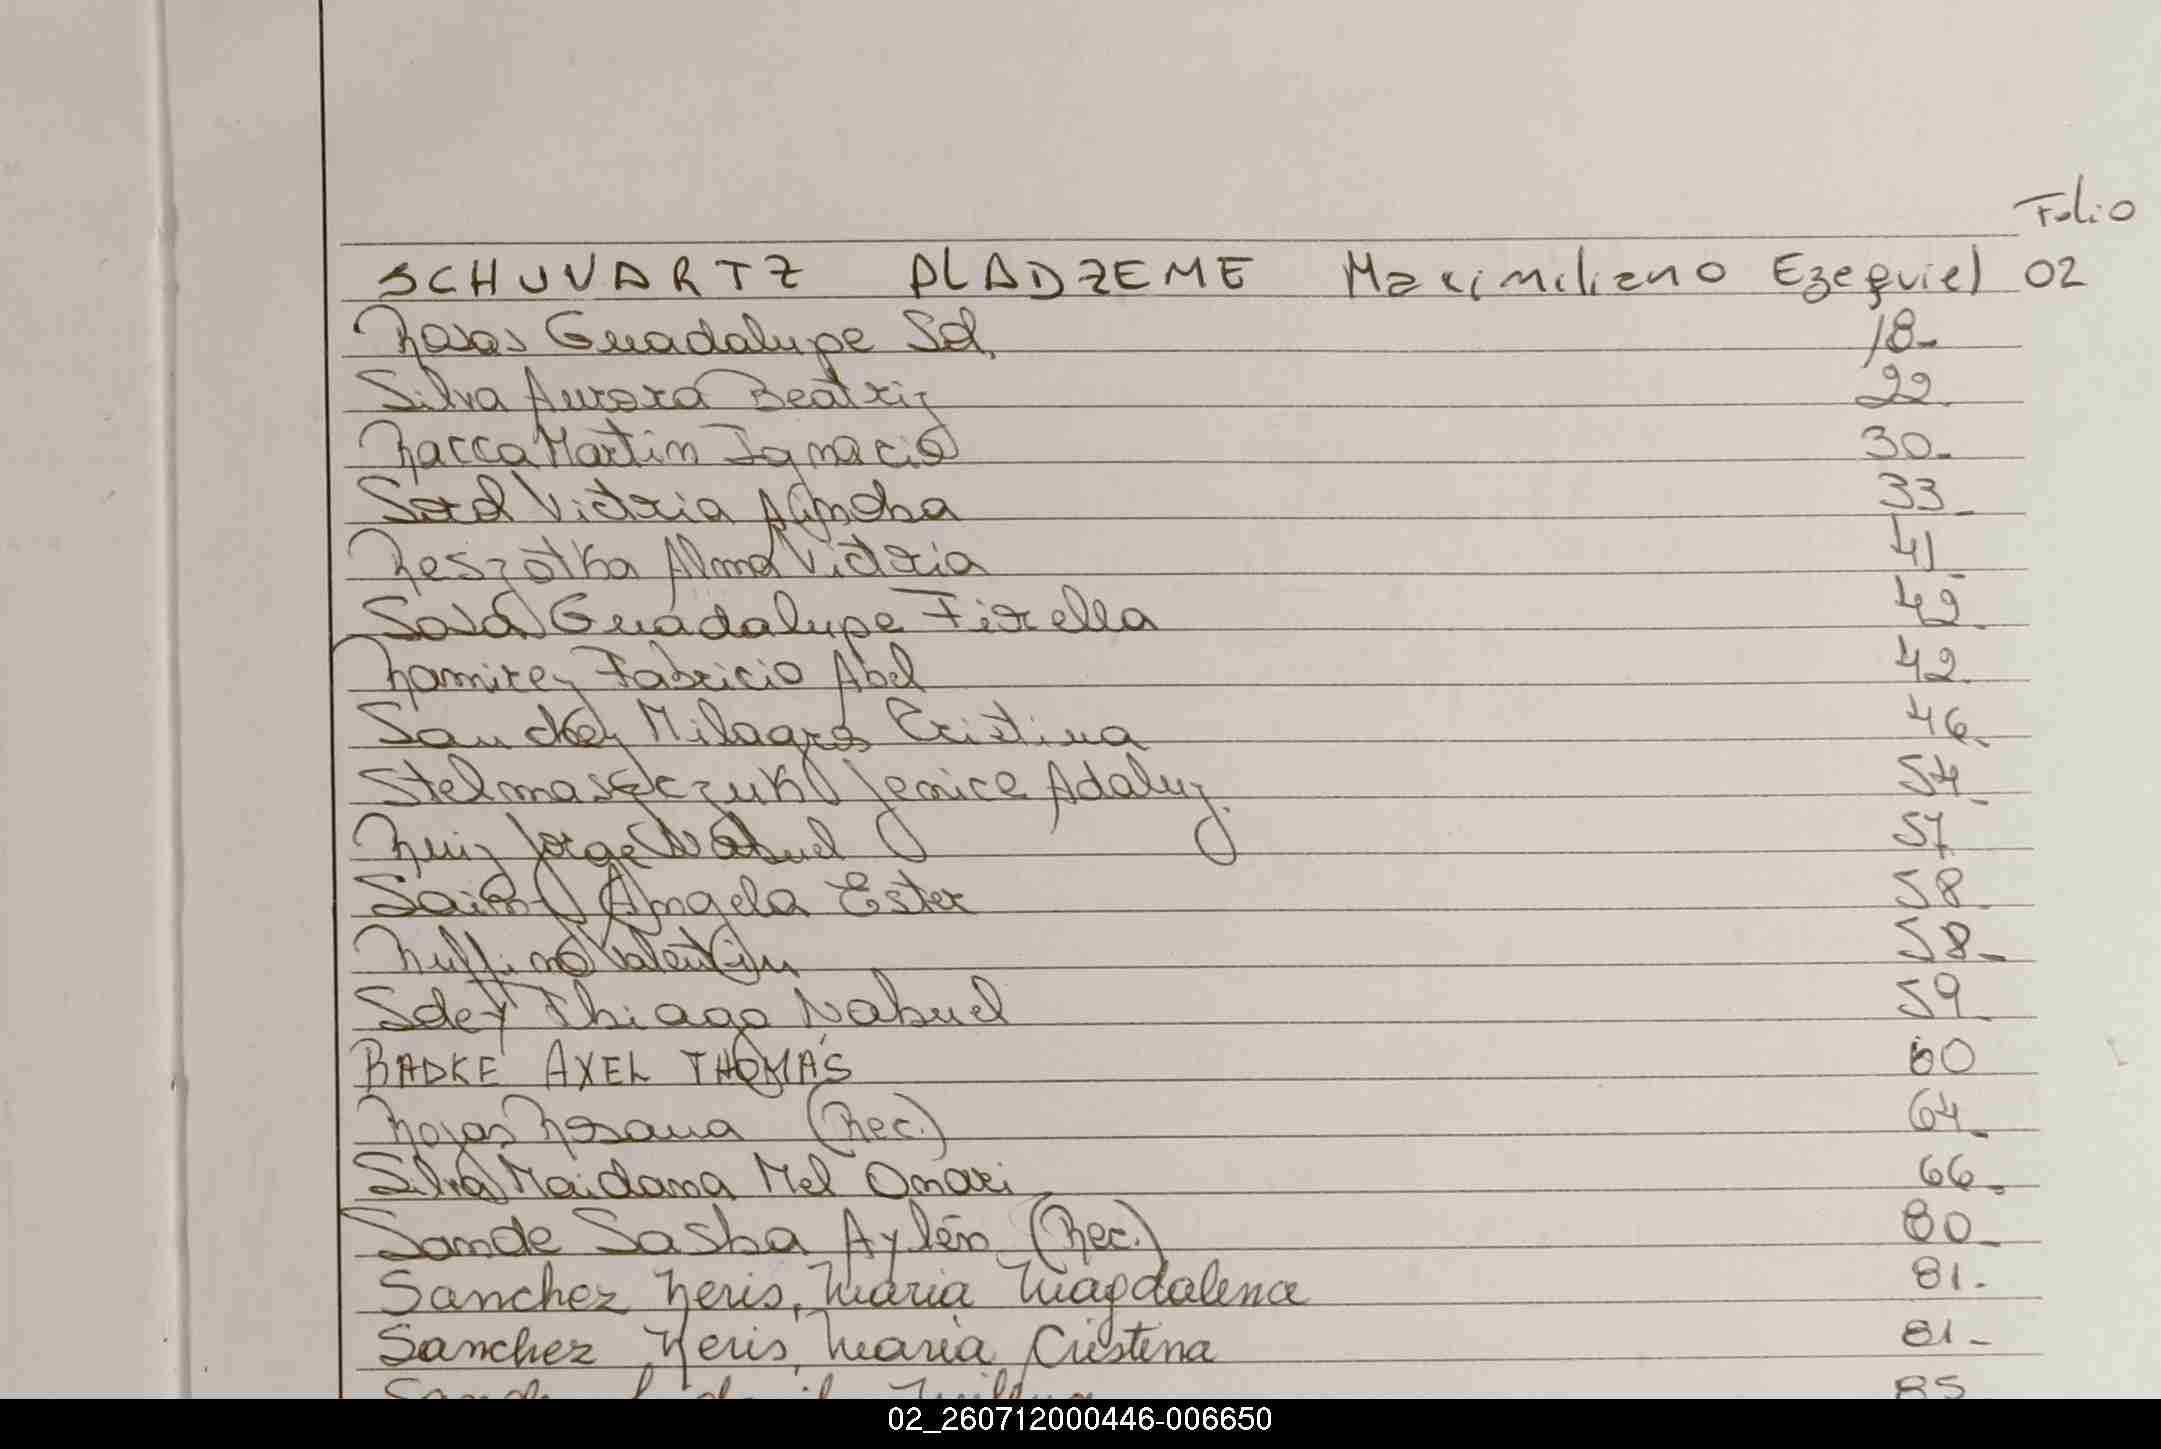 Folio
SCHUVARTZ PLADZEME Maximiliano Ezequiel 02
Rosas Guadalupe Sol. 18-
Silva Aurora Beatriz 22
Racca Martin Ignacio 30-
Victoria 33
Reszotka Alma Victoria 41
Sosa Guadalupe Fiorella 42
Ramirez Fabricio Abel 42
Sanchez Milagros Cristina 46
Jenice Adaluz. 54
Ruiz Jorge Nahuel 57
Angela Ester 58
Ruffino Valentin 58-
Thiago Nahuel 59
RADKE AXEL THOMÁS 60
Rojas Rosana (Rec.) 64-
Silva Maidana Mel Omari 66-
Sande Sasha Aylén (Rec.) 80-
Sanchez Neris, Maria Magdalena 81-
Sanchez Neris, Maria Cristina 81-
85
02_260712000446-006650